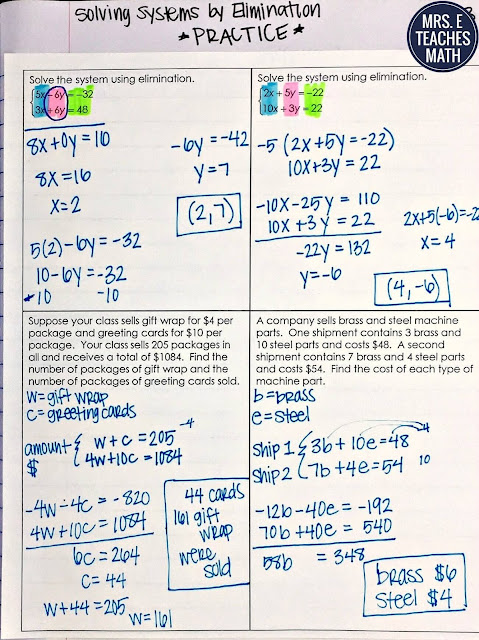 Solving Systems by Elimination
*PRACTICE*
MRS. E
TEACHES
MATH
Solve the system using elimination.
5x − 6y = −32
3x + 6y = 48
8x + 0y = 16
8x = 16
x = 2
5(2) − 6y = −32
10 − 6y = −32
−10 −10
−6y = −42
y = 7
(2, 7)
Solve the system using elimination.
2x + 5y = −22
10x + 3y = 22
−5 (2x + 5y = −22)
10x + 3y = 22
−10x − 25y = 110
10x + 3y = 22
−22y = 132
y = −6
2x + 5(−6) = −22
x = 4
(4, −6)
Suppose your class sells gift wrap for $4 per
package and greeting cards for $10 per
package. Your class sells 205 packages in
all and receives a total of $1084. Find the
number of packages of gift wrap and the
number of packages of greeting cards sold.
W = gift wrap
C = greeting cards
amount { w + c = 205 −4
$ 4w + 10c = 1084
−4w − 4c = −820
4w + 10c = 1084
6c = 264
c = 44
w + 44 = 205
w = 161
44 cards
161 gift
wrap
were
sold
A company sells brass and steel machine
parts. One shipment contains 3 brass and
10 steel parts and costs $48. A second
shipment contains 7 brass and 4 steel parts
and costs $54. Find the cost of each type of
machine part.
b = brass
e = steel
Ship 1 { 3b + 10e = 48 −4
Ship 2 7b + 4e = 54 10
−12b − 40e = −192
70b + 40e = 540
58b = 348
brass $6
steel $4